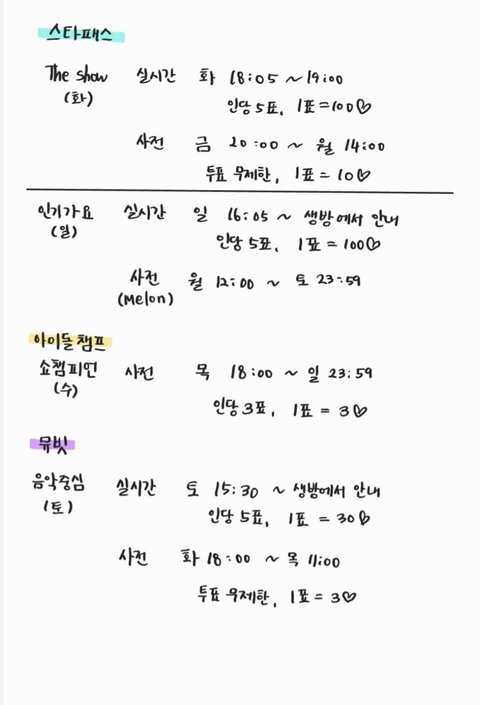 스타패스
The show 실시간 화 18:05 ~ 19:00
(화) 인당 5표, 1표=100♡
사전 금 20:00 ~ 월 14:00
투표 무제한, 1표=10♡
인기가요 실시간 일 16:05 ~ 생방에서 안내
(일) 인당 5표, 1표=100♡
사전 월 12:00 ~ 토 23:59
(Melon)
아이돌챔프
쇼챔피언 사전 목 18:00 ~ 일 23:59
(수) 인당 3표, 1표 = 3♡
뮤빗
음악중심 실시간 토 15:30 ~ 생방에서 안내
(토) 인당 5표, 1표 = 30♡
사전 화 18:00 ~ 목 11:00
투표 무제한, 1표 = 3♡